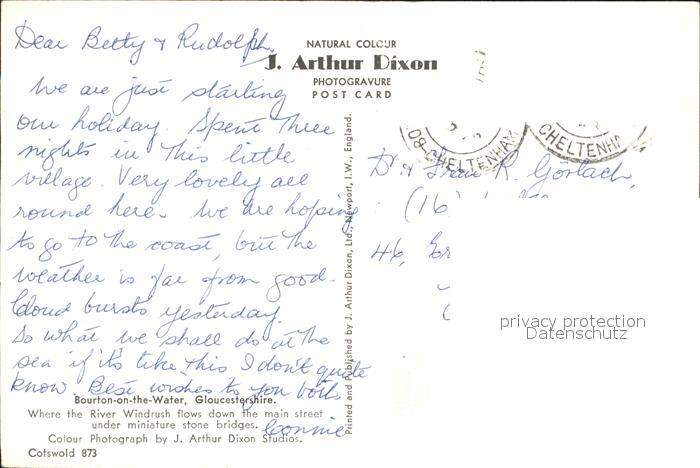 Dear Betty & Rudolph.
We are just starting
our holiday. Spent three
nights in this little
village. Very lovely all
round here. We are hoping
to go to the coast, but the
weather is far from good.
Cloud bursts yesterday.
So what we shall do at the
sea if it's like this I don't quite
know. Best wishes to you both
Connie
NATURAL COLOUR
J. Arthur Dixon
PHOTOGRAVURE
POST CARD
CHELTENHAM
CHELTENHA
Printed and Published by J. Arthur Dixon, Ltd., Newport, I.W., England.
D & Frau R. Gorlach,
(16
46,
privacy protection
Datenschutz
Bourton-on-the-Water, Gloucestershire.
Where the River Windrush flows down the main street
under miniature stone bridges.
Colour Photograph by J. Arthur Dixon Studios.
Cotswold 873